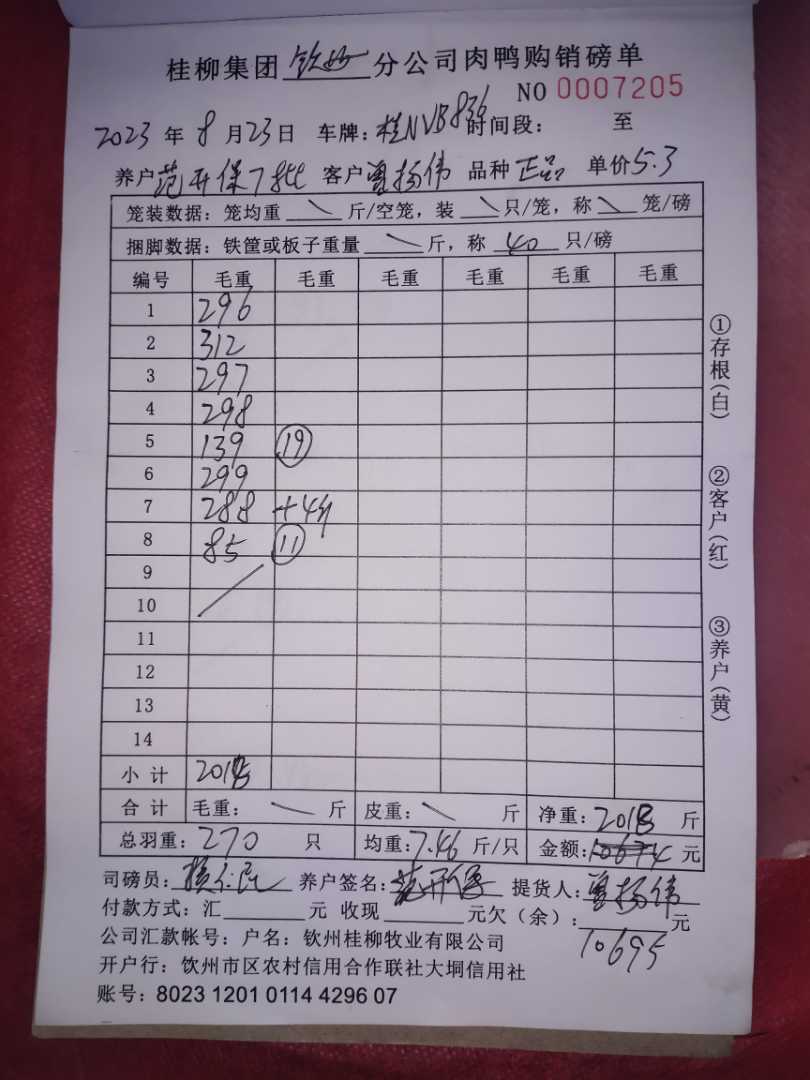 桂柳集团 钦州 分公司肉鸭购销磅单
NO 0007205
2023 年 8 月 23 日 车牌：桂NVB836 时间段： 至
养户 范开保7批 客户 曾扬伟 品种 正品 单价 5.3
笼装数据：笼均重 \ 斤/空笼，装 \ 只/笼，称 \ 笼/磅
捆脚数据：铁筐或板子重量 \ 斤，称 40 只/磅
编号 毛重 毛重 毛重 毛重 毛重 毛重
1 296
2 312
3 297
4 298
5 139 ⑲
6 299
7 288 +4斤
8 85 ⑪
9
10
11
12
13
14
小计 2018
合计 毛重： \ 斤 皮重： \ 斤 净重：2018 斤
总羽重：270 只 均重：7.46 斤/只 金额：10674 元
司磅员： 养户签名：范开保 提货人：曾扬伟
付款方式：汇 元 收现 元欠（余）： 元
10695
公司汇款帐号：户名：钦州桂柳牧业有限公司
开户行：钦州市区农村信用合作联社大垌信用社
账号：8023 1201 0114 4296 07
①存根（白）
②客户（红）
③养户（黄）